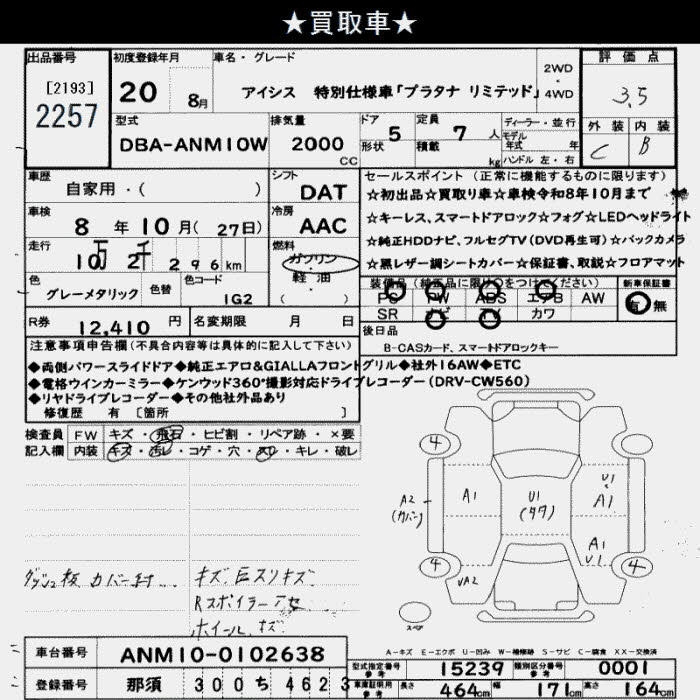 ★買取車★
出品番号
[2193]
2257
初度登録年月
20 8月
車名・グレード
アイシス 特別仕様車「プラタナ リミテッド」
2WD
・
4WD
評価点
3.5
型式
DBA-ANM10W
排気量
2000 CC
ドア 5
形状
定員 7 人
積載 kg
ディーラー・並行
モデル
年式 年
ハンドル 左・右
外装 内装
C B
車歴
自家用・( )
シフト
DAT
セールスポイント(正常に機能するものに限ります)
☆初出品☆買取り車☆車検令和8年10月まで
車検
8年10月(27日)
冷房
AAC
☆キーレス、スマートドアロック☆フォグ☆LEDヘッドライト
走行
10万2千296km
燃料
ガソリン
・
軽油
( )
☆純正HDDナビ、フルセグTV(DVD再生可)☆バックカメラ
☆黒レザー調シートカバー☆保証書、取説☆フロアマット
色
グレーメタリック
色替
色コード
1G2
装備品(純正品に限り○をつけてください)
PS PW ABS エアB AW
SR ナビ TV カワ
新車保証書
有・無
R券 12,410円
名変期限 月 日
後日品
B-CASカード、スマートドアロックキー
注意事項申告欄(不具合内容等は具体的に記入して下さい)
◆両側パワースライドドア◆純正エアロ&GIALLAフロントグリル◆社外16AW◆ETC
◆電格ウインカーミラー◆ケンウッド360°撮影対応ドライブレコーダー(DRV-CW560)
◆リヤドライブレコーダー◆その他社外品あり
修復歴 有 [箇所 ]
検査員 FW キズ・飛石・ヒビ割・リペア跡・×要
記入欄 内装 キズ・汚レ・コゲ・穴・スリ・キレ・破レ
4
A2
(カバー)
A1
U1
A1
A1
U1
UA2
4
4
スペア
キズ
Rスポイラー
ホイール キズ
A-キズ E-エクボ U-凹み W-補修跡 S-サビ C-腐食 XX-交換済
車台番号 ANM10-0102638
型式指定番号 参考 15239
類別区分番号 参考 0001
登録番号 那須 300 ち 4623
車庫証明用 参考 長さ 464cm 幅 171cm 高さ 164cm